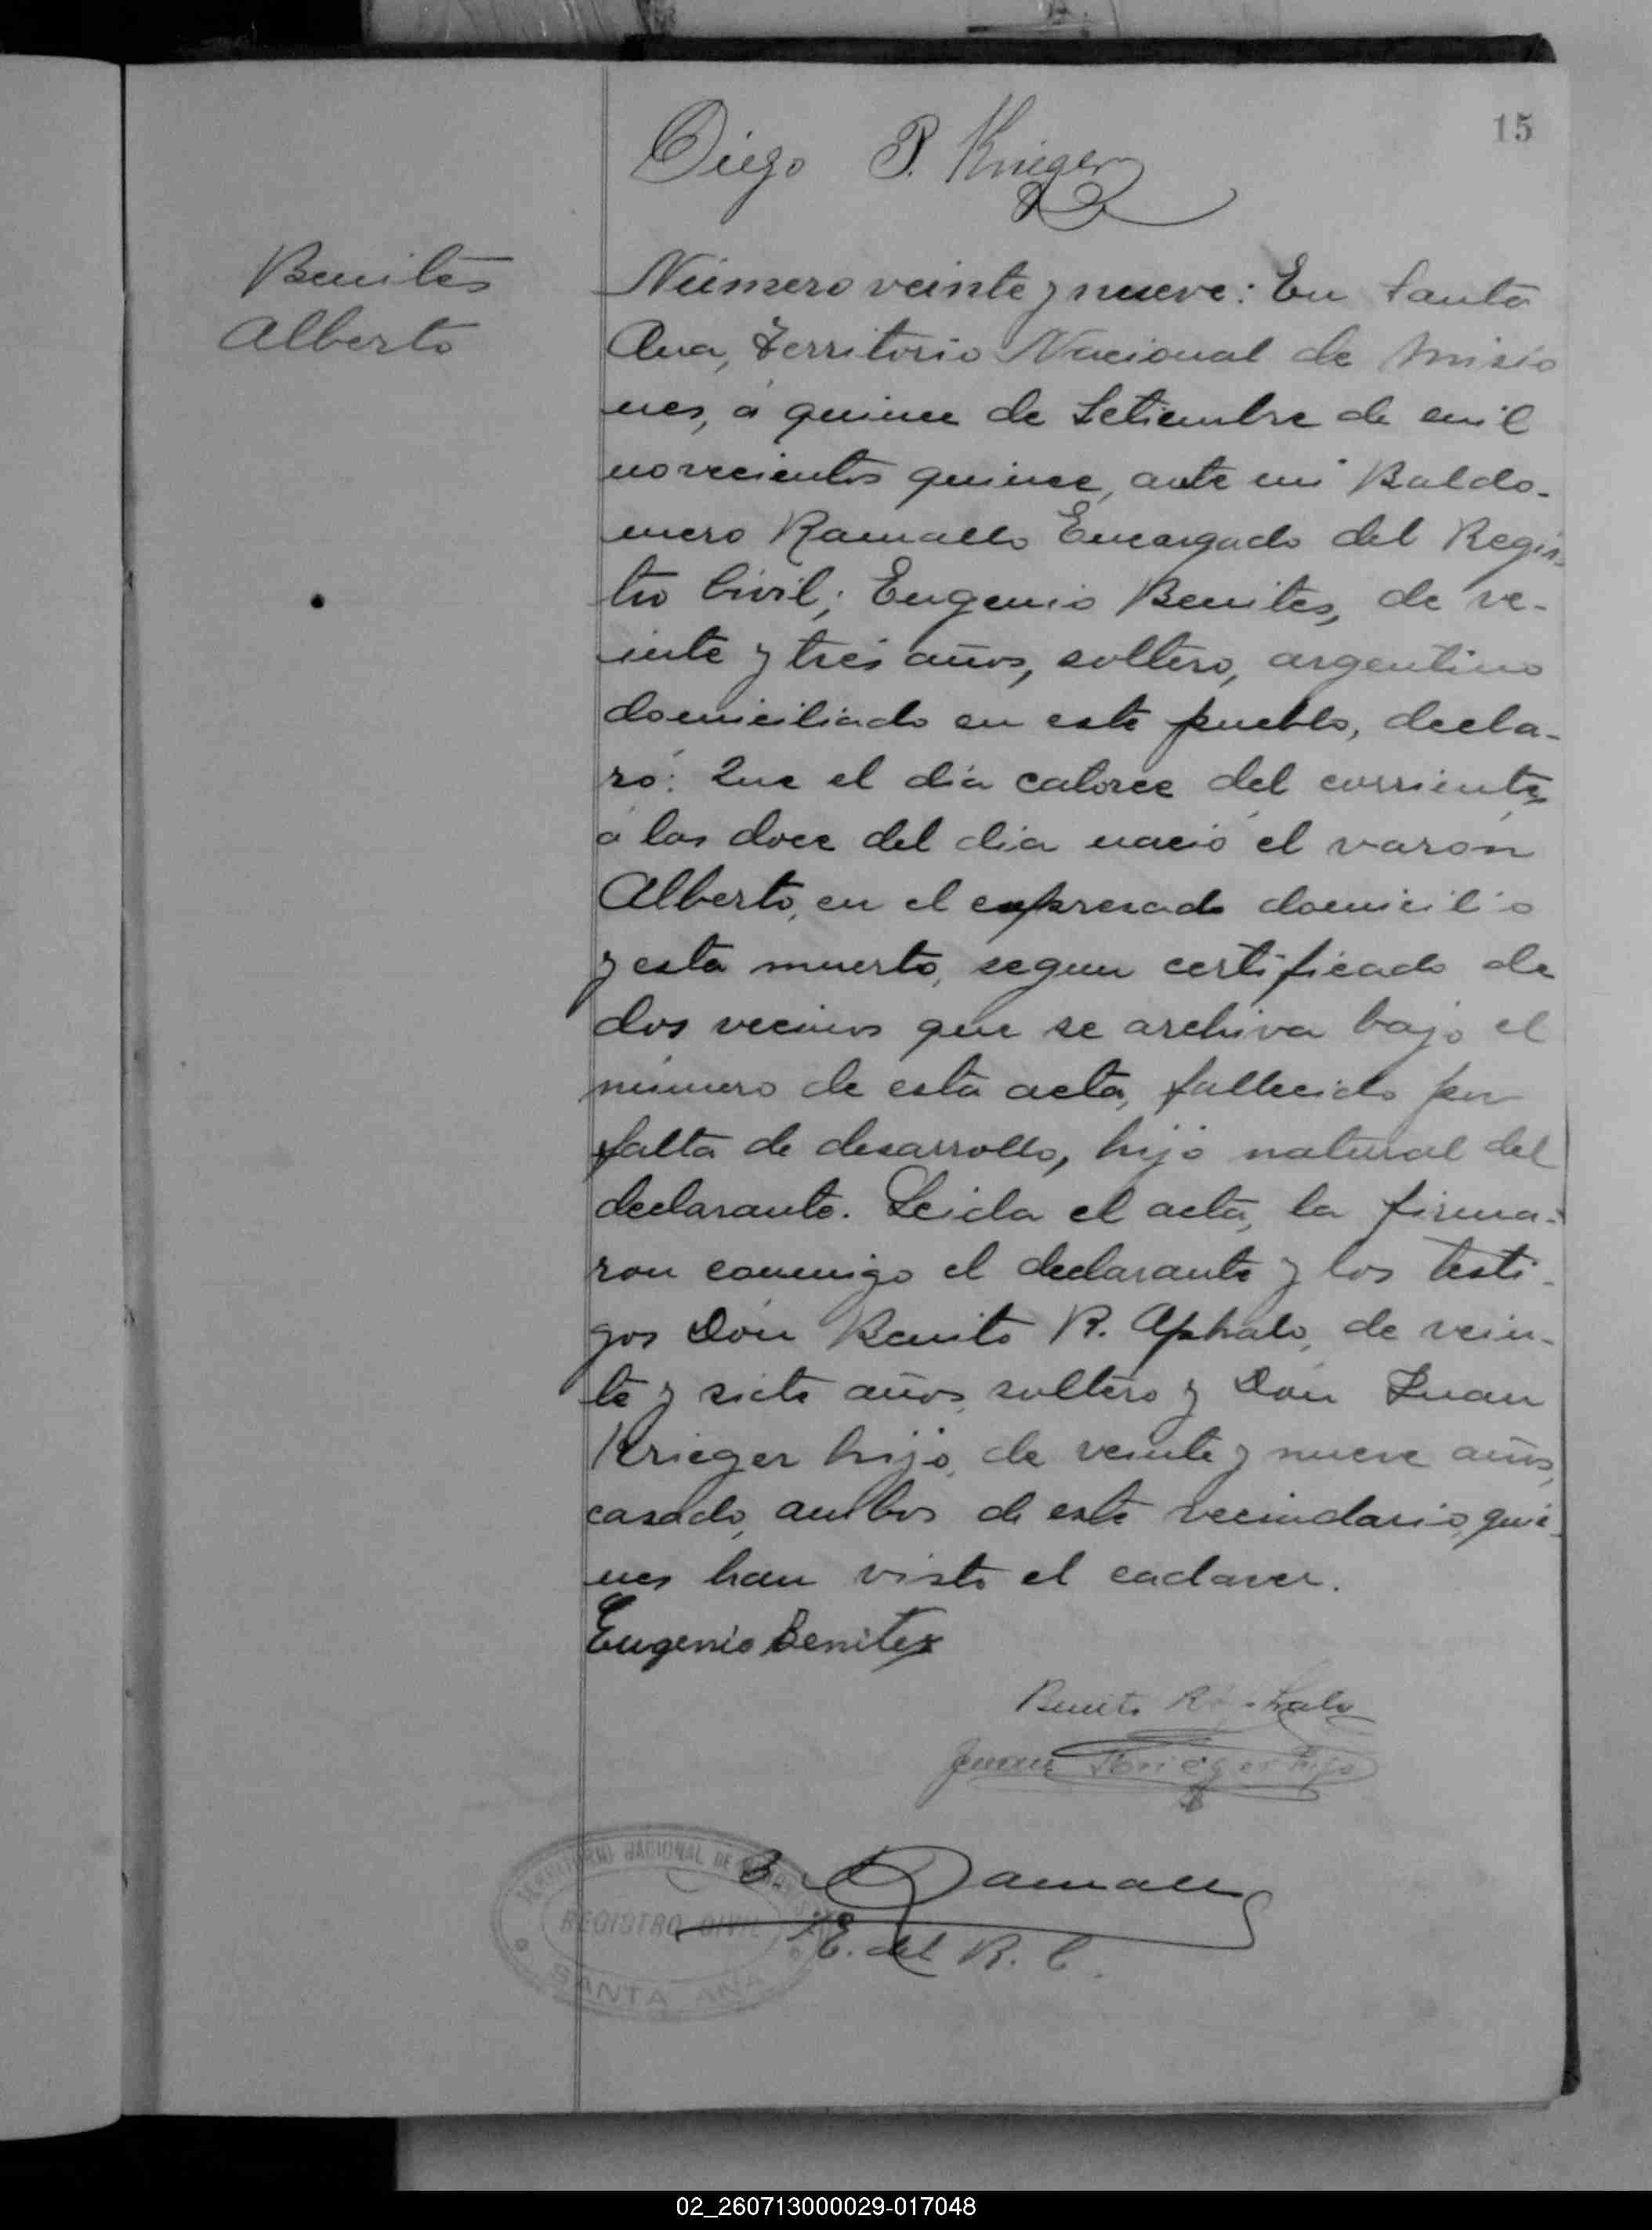 15
Diego P. Krieger
Benites
Alberto
Número veinte y nueve: En Santa
Ana, Territorio Nacional de Misio
nes, á quince de Setiembre de mil
novecientos quince, ante mi Baldo-
mero Ramallo Encargado del Regis-
tro Civil; Eugenio Benites, de ve-
inte y tres años, soltero, argentino
domiciliado en este pueblo, decla-
ró: Que el dia catorce del corriente,
á las doce del dia nació el varón
Alberto, en el expresado domicilio
y esta muerto, segun certificado de
dos vecinos que se archiva bajo el
número de esta acta, fallecido por
falta de desarrollo, hijo natural del
declarante. Leida el acta, la firma-
ron conmigo el declarante y los testi-
gos Dón Benito R. Aphalo, de vein-
te y siete años, soltero y Dón Juan
Krieger hijo, de veinte y nueve años,
casado, ambos de este vecindario, quie-
nes han visto el cadaver.
Eugenio Benitez
Benito R. Aphalo
Juan Krieger hijo
B Ramallo
E. del R. C.
TERRITORIO NACIONAL DE MISIONES
REGISTRO CIVIL
SANTA ANA
02_260713000029-017048